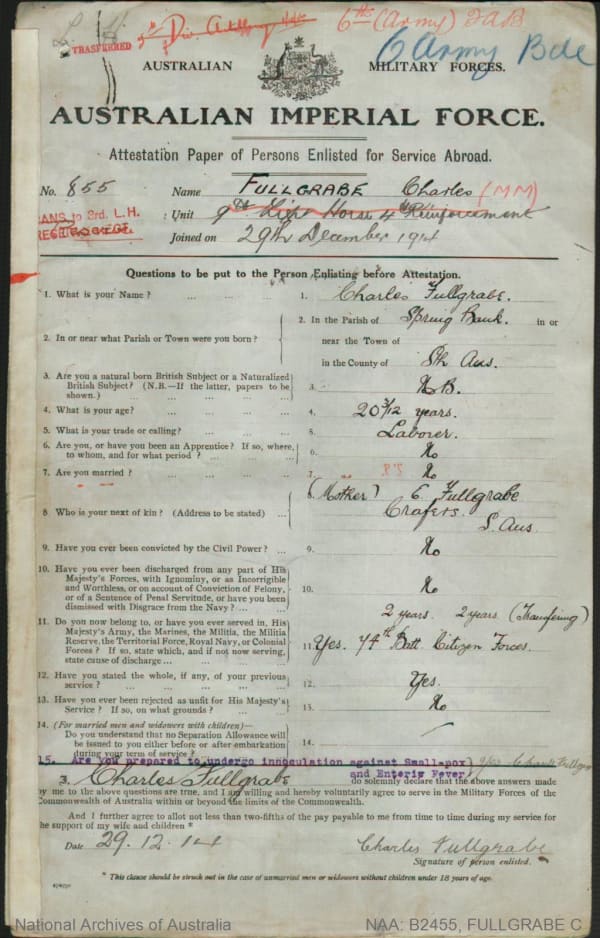 TRASFERRED 5th Div. 6th (Army) FAB
6 Army Bde
AUSTRALIAN MILITARY FORCES.
AUSTRALIAN IMPERIAL FORCE.
Attestation Paper of Persons Enlisted for Service Abroad.
No. 855 Name FULLGRABE Charles (MM)
TRANS to 3rd. L.H. Unit 9th Light Horse 4th Reinforcement
Joined on 29th December 1914
Questions to be put to the Person Enlisting before Attestation.
1. What is your Name? ... 1. Charles Fullgrabe.
2. In or near what Parish or Town were you born? 2. In the Parish of Spring Bank. in or
near the Town of
in the County of Sth Aus.
3. Are you a natural born British Subject or a Naturalized
British Subject? (N.B.—If the latter, papers to be
shown.) 3. N.B.
4. What is your age? ... 4. 20 3/12 years.
5. What is your trade or calling? ... 5. Laborer.
6. Are you, or have you been an Apprentice? If so, where,
to whom, and for what period? ... 6. No
7. Are you married? ... 7. No
8. Who is your next of kin? (Address to be stated) ... 8. (Mother) E. Fullgrabe
Crafers.
S. Aus
9. Have you ever been convicted by the Civil Power? ... 9. No
10. Have you ever been discharged from any part of His
Majesty's Forces, with Ignominy, or as Incorrigible
and Worthless, or on account of Conviction of Felony,
or of a Sentence of Penal Servitude, or have you been
dismissed with Disgrace from the Navy? ... 10. No
2 years 2 years (Transfering)
11. Do you now belong to, or have you ever served in, His
Majesty's Army, the Marines, the Militia, the Militia
Reserve, the Territorial Force, Royal Navy, or Colonial
Forces? If so, state which, and if not now serving,
state cause of discharge ... 11. Yes. 74th Batt. Citizen Forces.
12. Have you stated the whole, if any, of your previous
service? ... 12. Yes.
13. Have you ever been rejected as unfit for His Majesty's
Service? If so, on what grounds? ... 13. No
14. (For married men and widowers with children)—
Do you understand that no Separation Allowance will
be issued to you either before or after embarkation
during your term of service? 14.
15. Are you prepared to undergo innoculation against Small-pox
and Enteric Fever Yes Charles Fullgrabe
I, Charles Fullgrabe do solemnly declare that the above answers made
by me to the above questions are true, and I am willing and hereby voluntarily agree to serve in the Military Forces of the
Commonwealth of Australia within or beyond the limits of the Commonwealth.
And I further agree to allot not less than two-fifths of the pay payable to me from time to time during my service for
the support of my wife and children *
Date 29.12.14 Charles Fullgrabe
Signature of person enlisted.
* This clause should be struck out in the case of unmarried men or widowers without children under 18 years of age.
National Archives of Australia NAA: B2455, FULLGRABE C